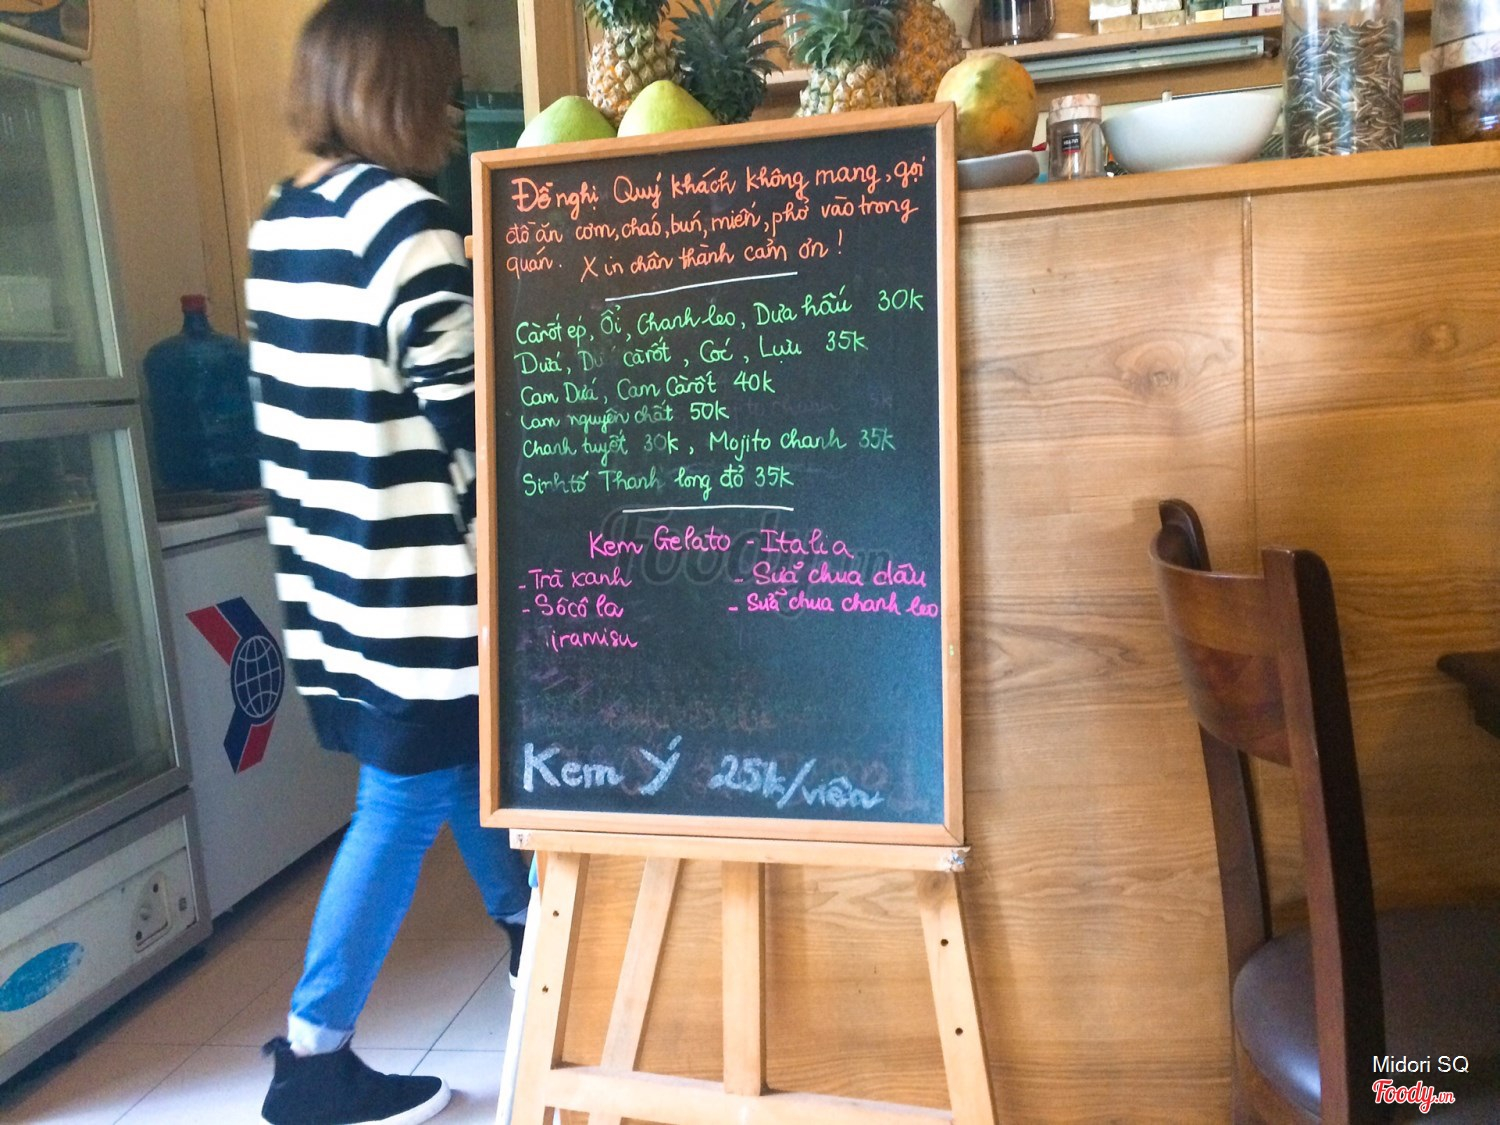 Đề nghị Quý khách không mang, gọi
đồ ăn cơm, cháo, bún, miến, phở vào trong
quán. Xin chân thành cảm ơn!
Cà rốt ép, Ổi, Chanh leo, Dưa hấu 30k
Dứa, Dứa cà rốt, Cóc, Lựu 35k
Cam Dứa, Cam Cà rốt 40k
Cam nguyên chất 50k
Chanh tuyết 30k, Mojito chanh 35k
Sinh tố Thanh long đỏ 35k
Kem Gelato - Italia
- Trà xanh - Sữa chua dâu
- Sôcôla - Sữa chua chanh leo
iramisu
Kem Ý 25k/viên
Foody.vn
Midori SQ
Foody.vn